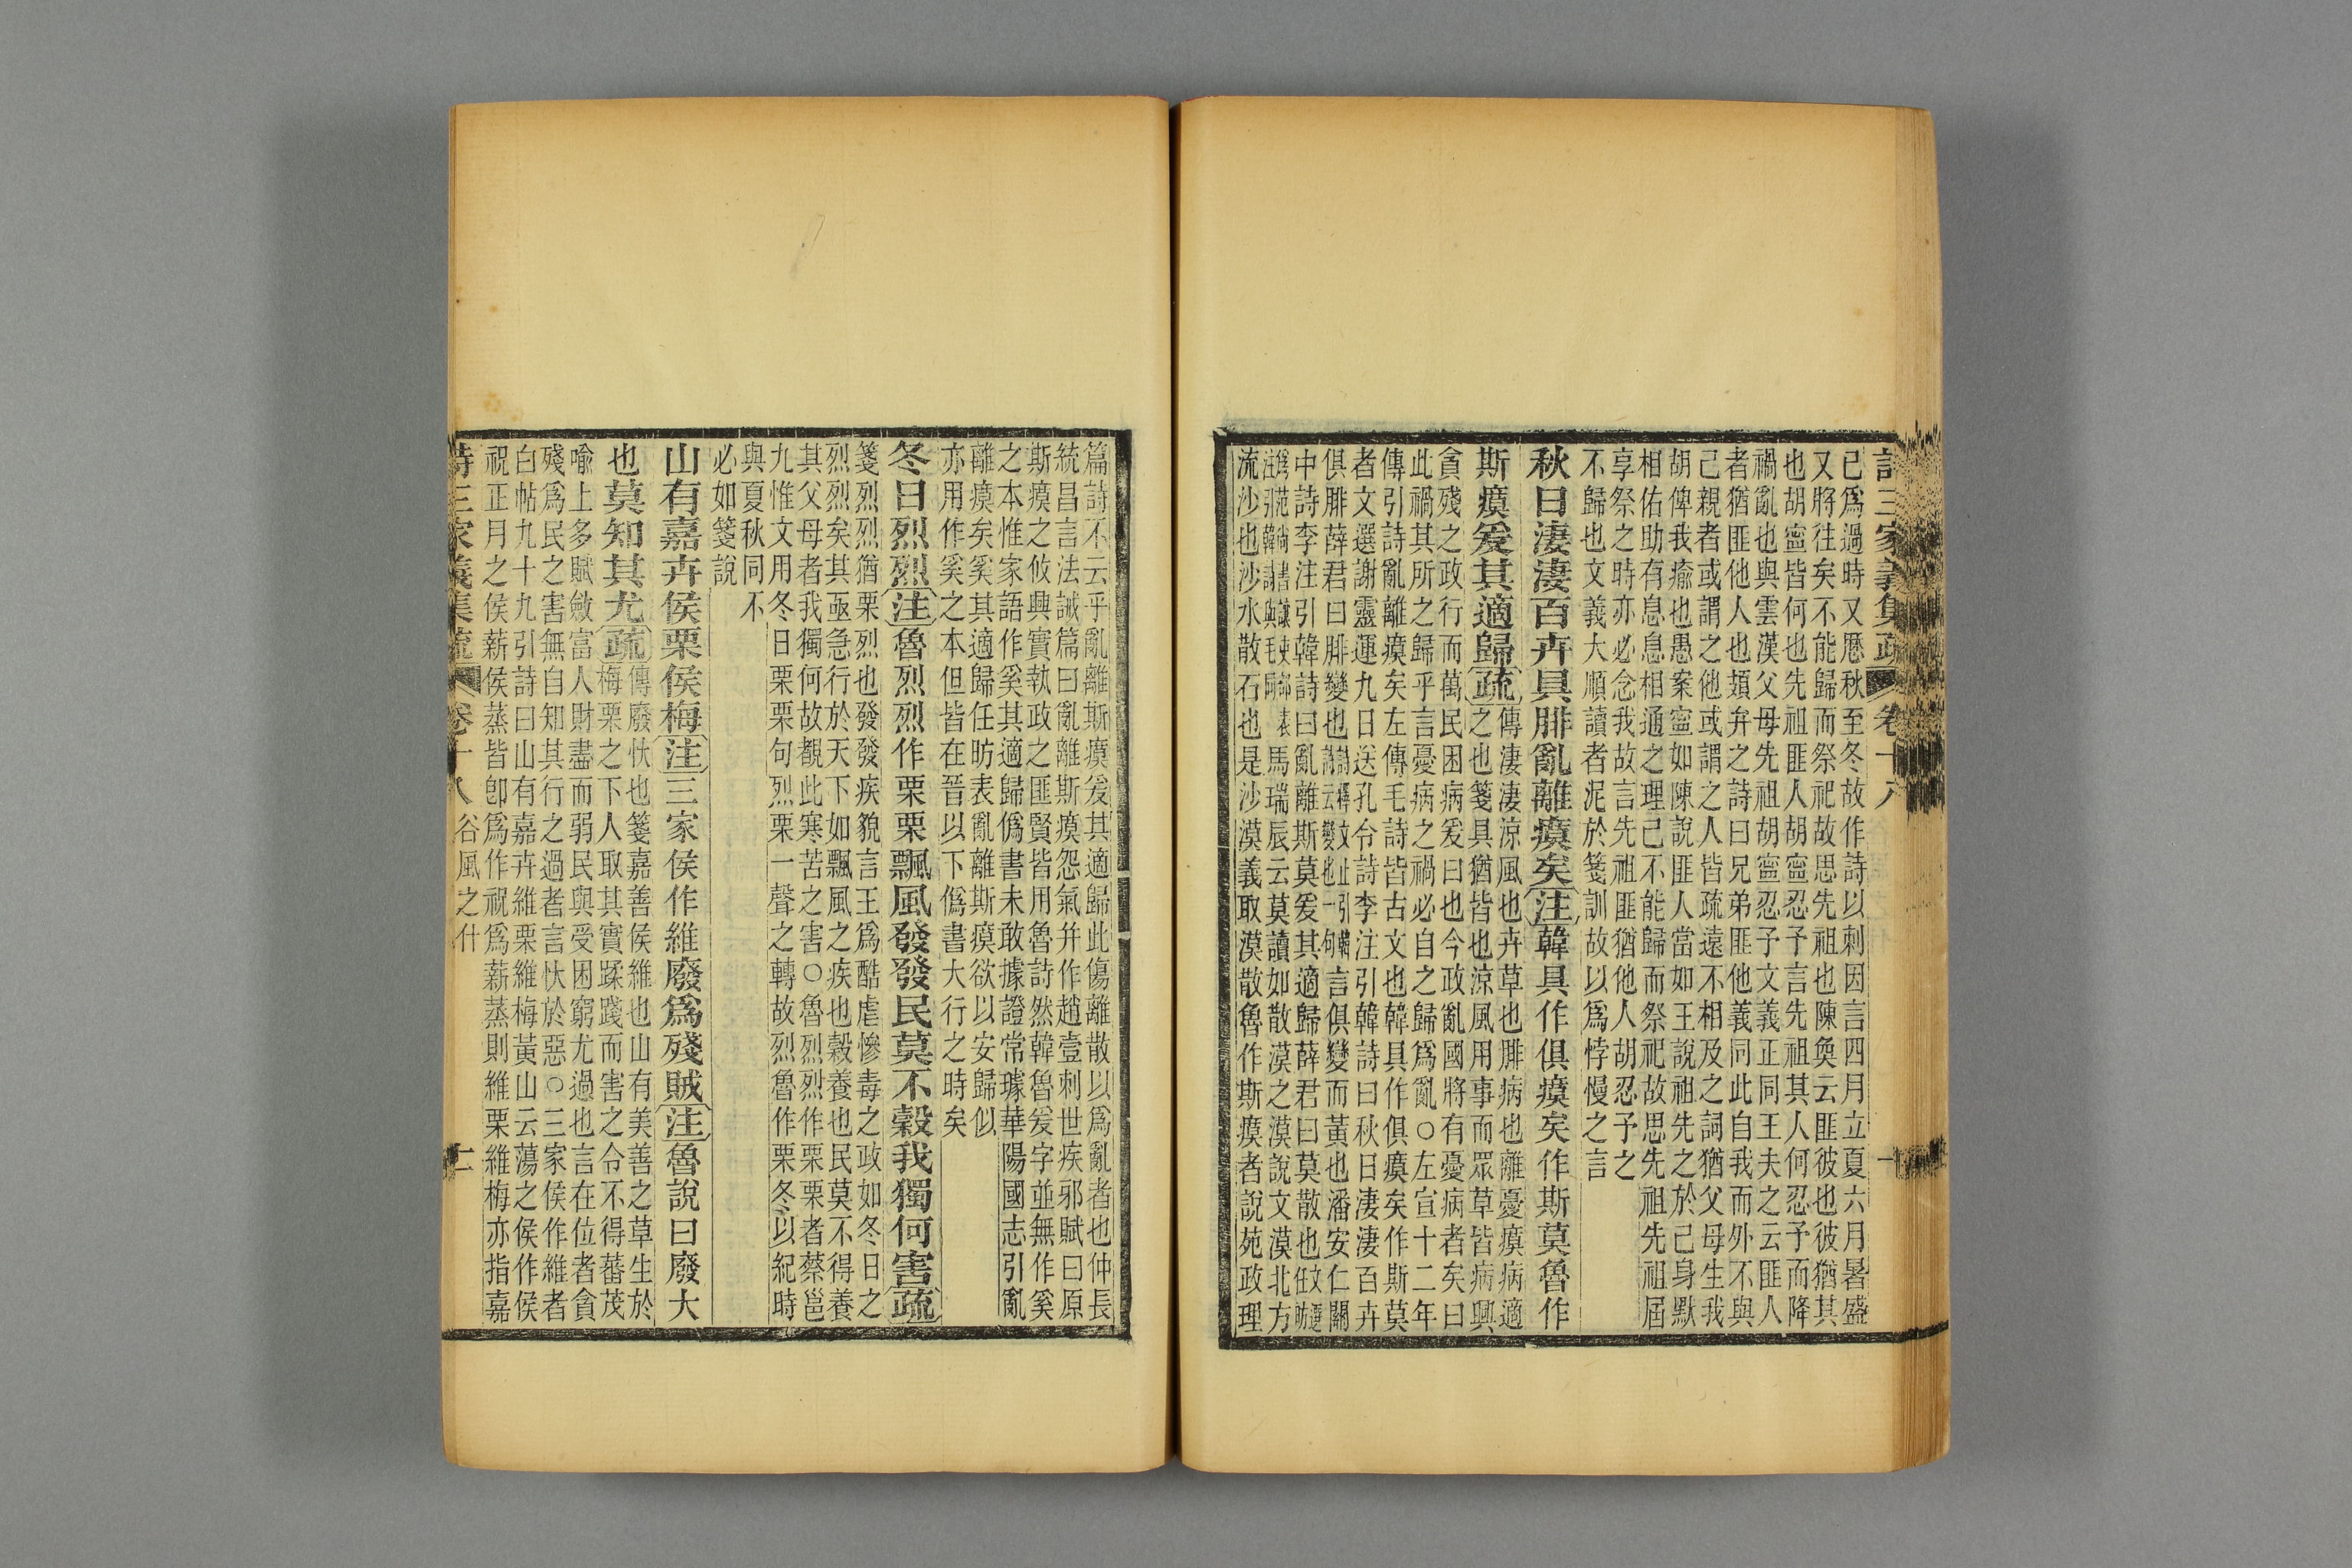 詩三家義集疏 卷十八 一
已爲過時又歷秋至冬故作詩以刺因言四月立夏六月暑盛
又將往矣不能歸而祭祀故思先祖也陳奐云匪彼也彼猶其
也胡寧皆何也先祖匪人胡寧忍予言先祖其人何忍予而降
禍亂也與雲漢父母先祖胡寧忍予文義正同王夫之云匪人
者猶匪他人也頍弁之詩曰兄弟匪他義同此自我而外不與
己親者或謂之他或謂之人皆疏遠不相及之詞猶父母生我
胡俾我瘉也愚案寧如陳說匪人當如王說祖先之於己身默
相佑助有息息相通之理己不能歸而祭祀故思先祖先祖屆
享祭之時亦必念我故言先祖匪猶他人胡忍予之
不歸也文義大順讀者泥於箋訓故以爲悖慢之言
秋日淒淒百卉具腓亂離瘼矣注韓具作俱瘼矣作斯莫魯作
斯瘼爰其適歸疏傳淒淒涼風也卉草也腓病也離憂瘼病適
之也箋具猶皆也涼風用事而眾草皆病興
貪殘之政行而萬民困病爰曰也今政亂國將有憂病者矣曰
此禍其所之歸乎言憂病之禍必自之歸爲亂○左宣十二年
傳引詩亂離瘼矣左傳毛詩皆古文也韓具作俱瘼矣作斯莫
者文選謝靈運九日送孔令詩李注引韓詩曰秋日淒淒百卉
俱腓薛君曰腓變也言俱變而黃也潘安仁關
中詩李注引韓詩曰亂離斯莫爰其適歸薛君曰莫散也
馬瑞辰云莫讀如散漠之漠說文漠北方
流沙也沙水散石也是沙漠義取漠散魯作斯瘼者說苑政理
篇詩不云乎亂離斯瘼爰其適歸此傷離散以爲亂者也仲長
統昌言法誡篇曰亂離斯瘼怨氣并作趙壹刺世疾邪賦曰原
斯瘼之攸興實執政之匪賢皆用魯詩然韓魯爰字並無作奚
之本惟家語作奚其適歸僞書未敢據證常璩華陽國志引亂
離瘼矣奚其適歸任昉表亂離斯瘼欲以安歸似
亦用作奚之本但皆在晉以下僞書大行之時矣
冬日烈烈注魯烈烈作栗栗飄風發發民莫不穀我獨何害疏
箋烈烈猶栗烈也發發疾貌言王爲酷虐慘毒之政如冬日之
烈烈矣其亟急行於天下如飄風之疾也穀養也民莫不得養
其父母者我獨何故覩此寒苦之害○魯烈烈作栗栗者蔡邕
九惟文用冬日栗栗句烈栗一聲之轉故烈魯作栗冬以紀時
與夏秋同不
必如箋說
山有嘉卉侯栗侯梅注三家侯作維廢爲殘賊注魯說曰廢大
也莫知其尤疏傳廢忕也箋嘉善侯維也山有美善之草生於
梅栗之下人取其實蹂踐而害之令不得蕃茂
喻上多賦斂富人財盡而弱民與受困窮尤過也言在位者貪
殘爲民之害無自知其行之過者言忕於惡○三家侯作維者
白帖九十九引詩曰山有嘉卉維栗維梅黃山云蕩之侯作侯
祝正月之侯薪侯蒸皆卽爲作祝爲薪蒸則維栗維梅亦指嘉
詩三家義集疏 卷十八 谷風之什 二